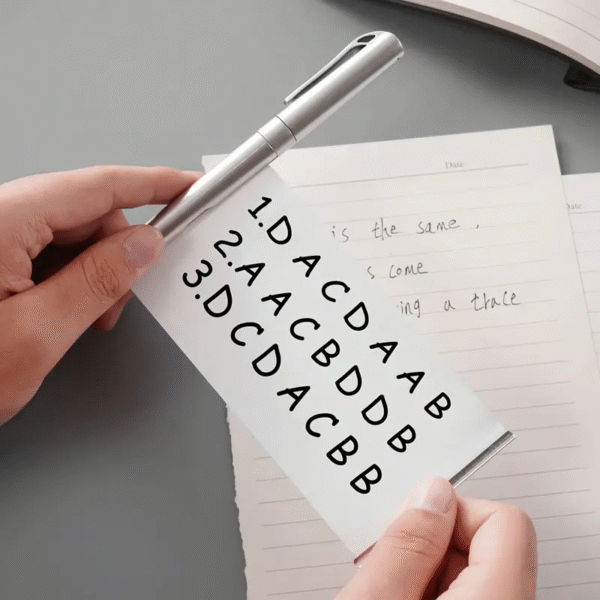 1.DACDAAB
2.AACBDDB
3.DCDACBB
Date
is the same .
s come
ing a trace
Date